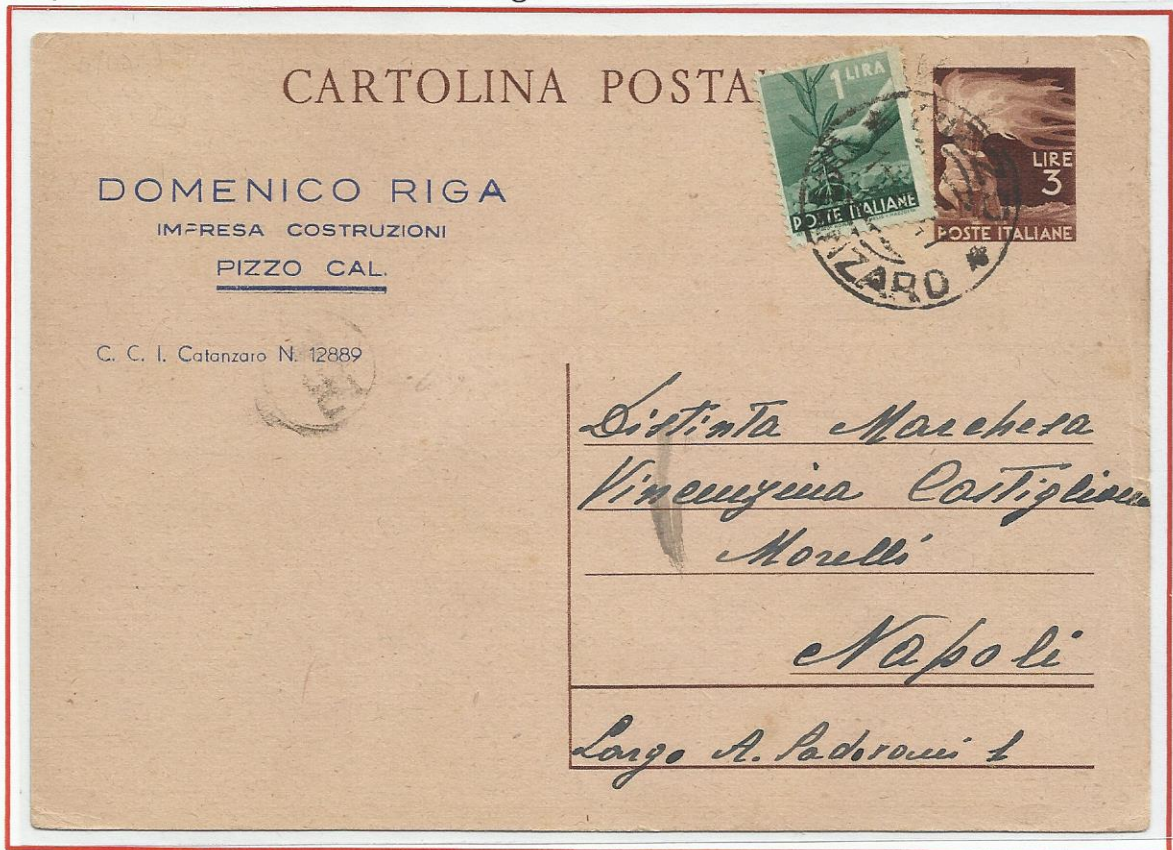 CARTOLINA POSTA
1 LIRA
POSTE ITALIANE
LIRE
3
POSTE ITALIANE
DOMENICO RIGA
IMPRESA COSTRUZIONI
PIZZO CAL.
C. C. I. Catanzaro N. 12889
ZARO
Distinta Marchesa
Vincenzina Castiglione
Morelli
Napoli
Largo A.